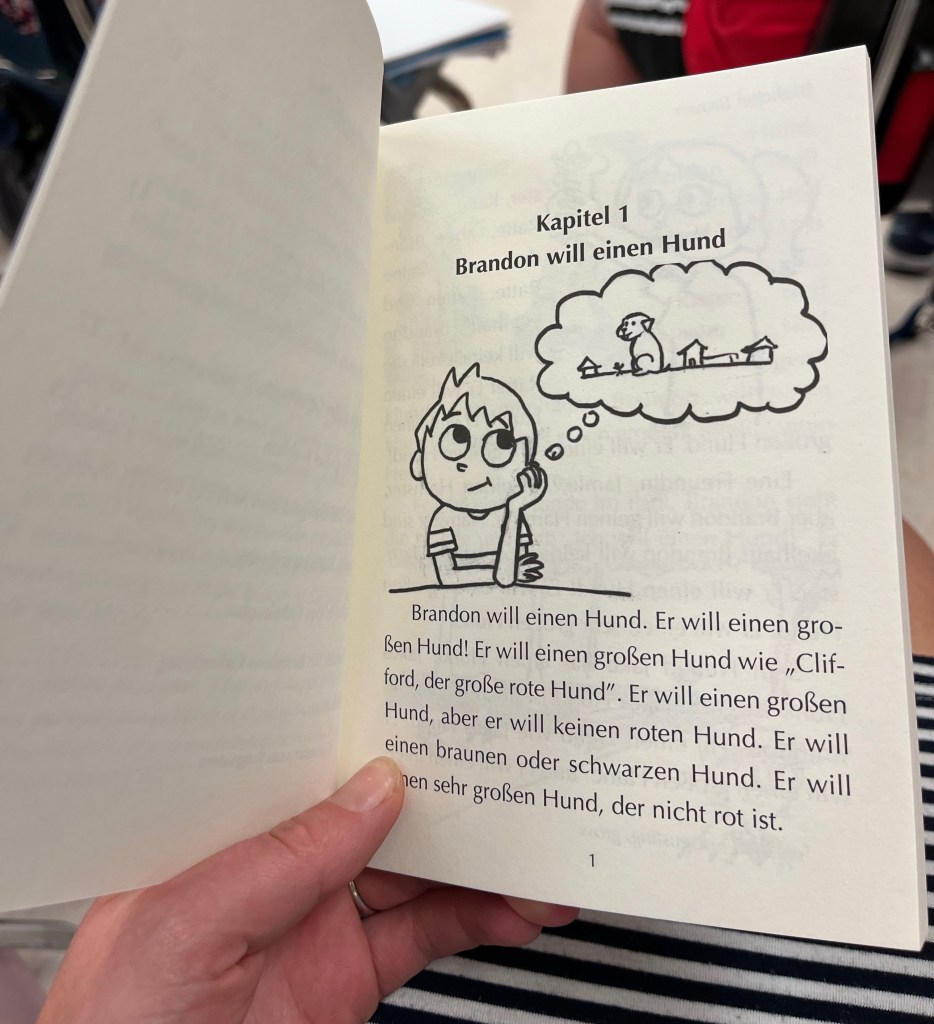 Kapitel 1
Brandon will einen Hund
Brandon will einen Hund. Er will einen gro-
ßen Hund! Er will einen großen Hund wie „Clif-
ford, der große rote Hund". Er will einen großen
Hund, aber er will keinen roten Hund. Er will
einen braunen oder schwarzen Hund. Er will
sehr großen Hund, der nicht rot ist.
1